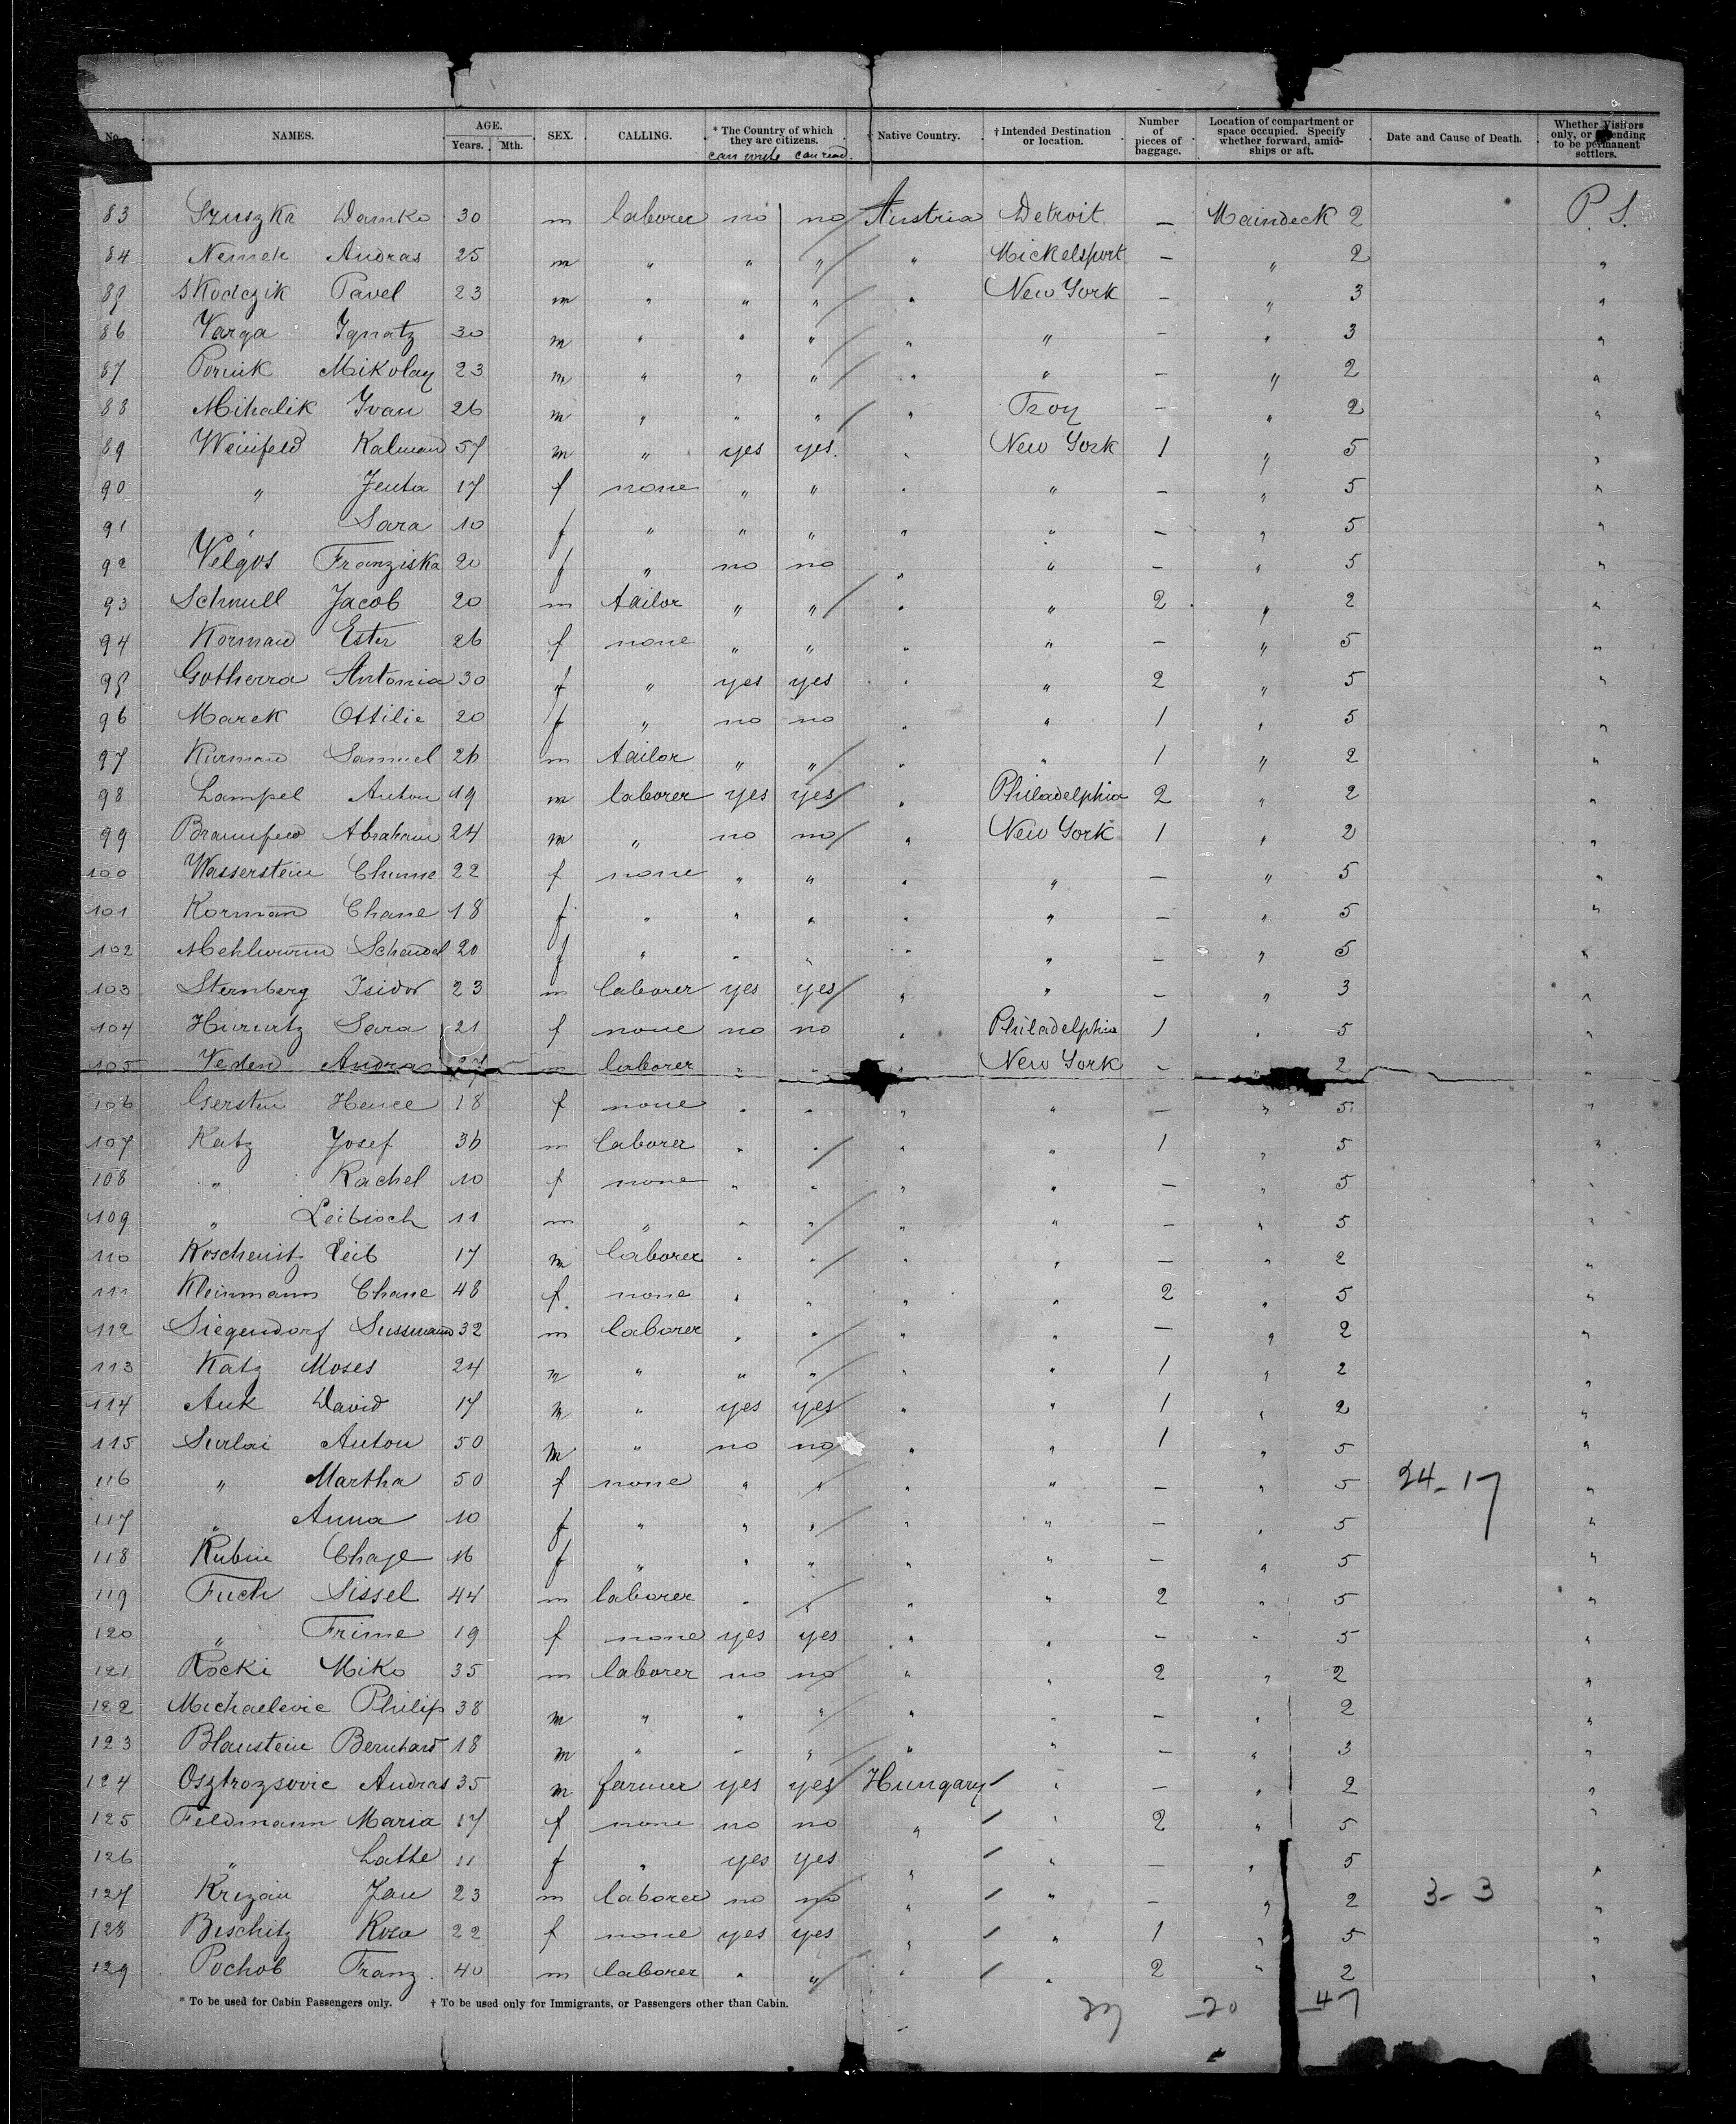 No. NAMES. AGE. Years. Mth. SEX. CALLING. * The Country of which they are citizens. can write can read. † Native Country. † Intended Destination or location. Number of pieces of baggage. Location of compartment or space occupied. Specify whether forward, amidships or aft. Date and Cause of Death. Whether Visitors only, or intending to be permanent settlers.
83 Szuszka Damko 30 m laborer no no Austria Detroit — Maindeck 2 P. S.
84 Nemek Andras 25 m " " " " Mickelsport — " 2 "
85 Skodczik Pavel 23 m " " " " New York — " 3 "
86 Varga Ignatz 30 m " " " " " — " 3 "
87 Mikolay 23 m " " " " " — " 2 "
88 Mihalik Ivan 26 m " " " " Troy — " 2 "
89 Weinfeld Kalman 57 m " yes yes. " New York 1 " 5 "
90 " Jenta 17 f none " " " " — " 5 "
91 " Sara 10 f " " " " " — " 5 "
92 Velgos Franziska 20 f " no no " " — " 5 "
93 Schmull Jacob 20 m tailor " " " " 2 " 2 "
94 Korman Ester 26 f none " " " " — " 5 "
95 Gotherra Antonia 30 f " yes yes " " 2 " 5 "
96 Marek Ottilie 20 f " no no " " 1 " 5 "
97 Kurman Samuel 26 m tailor " " " " 1 " 2 "
98 Lampel Anton 19 m laborer yes yes " Philadelphia 2 " 2 "
99 Abraham 24 m " no no " New York 1 " 2 "
100 Wasserstein Chume 22 f none " " " " — " 5 "
101 Korman Chane 18 f " " " " " — " 5 "
102 Mehlwurm Scheindel 20 f " " " " " — " 5 "
103 Sternberg Isidor 23 m laborer yes yes " " — " 3 "
104 Sara 21 f none no no " Philadelphia 1 " 5 "
105 Veden Andras 27 m laborer " " " New York — " 2 "
106 Gersten Hence 18 f none " " " " — " 5 "
107 Katz Josef 36 m laborer " " " " 1 " 5 "
108 " Rachel 10 f none " " " " — " 5 "
109 " Leibisch 11 m " " " " " — " 5 "
110 Leib 17 m laborer " " " " — " 2 "
111 Kleinmann Chane 48 f. none " " " " 2 " 5 "
112 Siegendorf Sussmann 32 m laborer " " " " — " 2 "
113 Katz Moses 24 m " " " " " 1 " 2 "
114 Auk David 17 m " yes yes " " 1 " 2 "
115 Surlai Anton 50 m " no no " " 1 " 5 "
116 " Martha 50 f none " " " " — " 5 24-17 "
117 " Anna 10 f " " " " " — " 5 "
118 Rubin Chaje 16 f " " " " " — " 5 "
119 Fuch Sissel 44 m laborer " " " " 2 " 5 "
120 " Frime 19 f none yes yes " " — " 5 "
121 Rocki Miko 35 m laborer no no " " 2 " 2 "
122 Michaelevic Philip 38 m " " " " " — " 2 "
123 Blaustein Bernhard 18 m " " " " " — " 3 "
124 Osztrozsovic Andras 35 m farmer yes yes Hungary " — " 2 "
125 Feldmann Maria 17 f none no no " " 2 " 5 "
126 " Lathe 11 f " yes yes " " — " 5 "
127 Krizan Jan 23 m laborer no no " " — " 2 3-3 "
128 Bischitz Rosa 22 f none yes yes " " 1 " 5 "
129 Pochob Franz. 40 m laborer " " " " 2 " 2 "
* To be used for Cabin Passengers only. † To be used only for Immigrants, or Passengers other than Cabin.
20 47